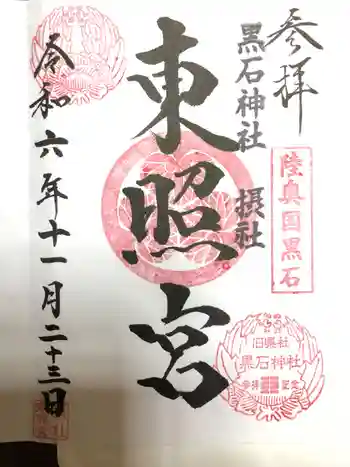 参拝
陸奥国黒石
黒石神社 摂社
東照宮
旧県社
黒石神社
参拝記念
令和六年十一月二十三日